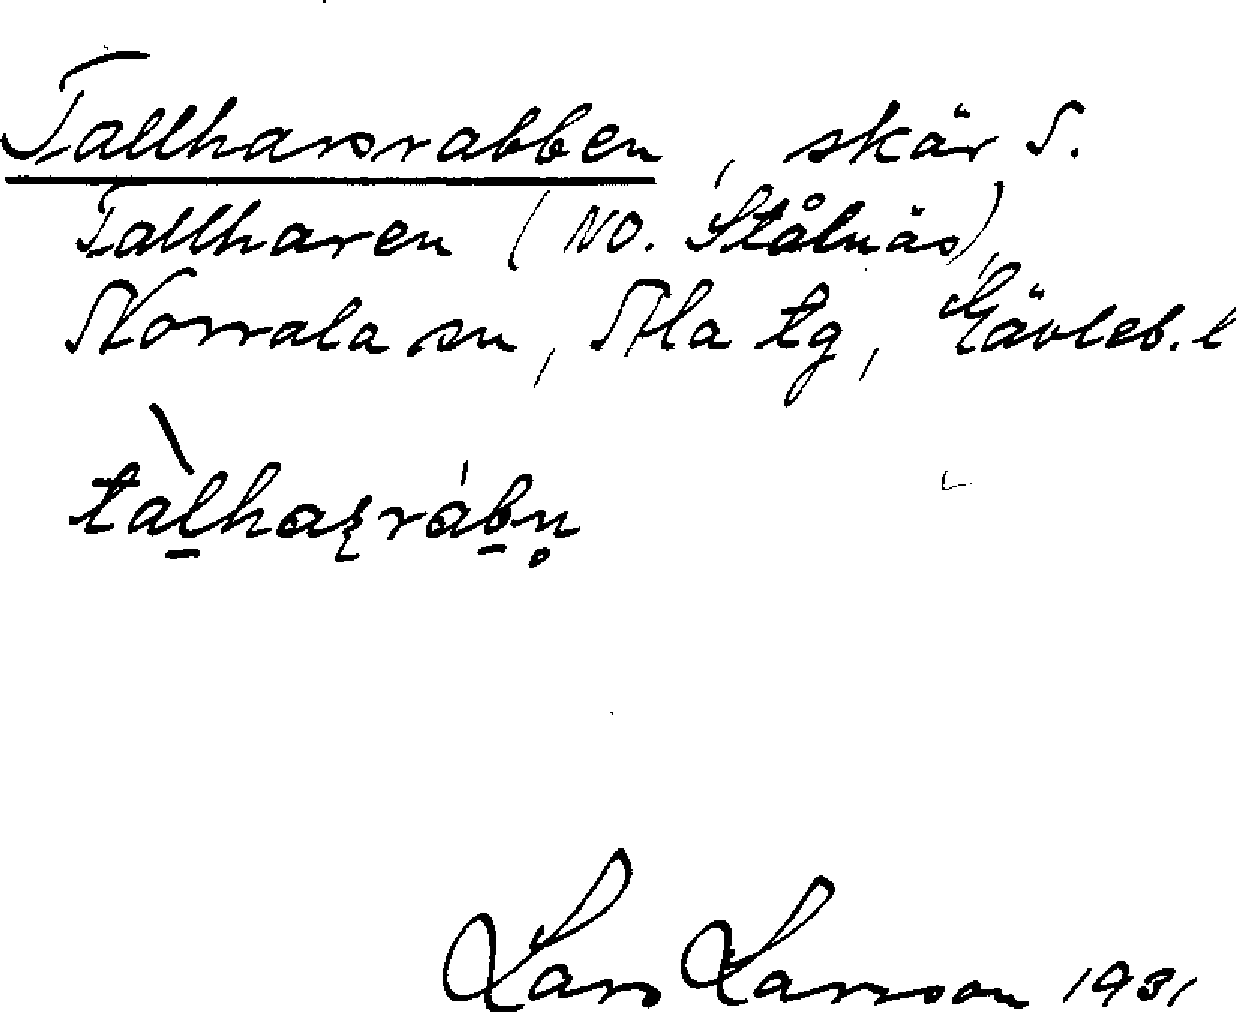 Tallharsrabben, skär S.
Tallharen (NO. Stålnäs),
Norrala sn, Ala tg, Gävleb. l
tàl̲harsráb̲n̥
Lars Larsson 1931